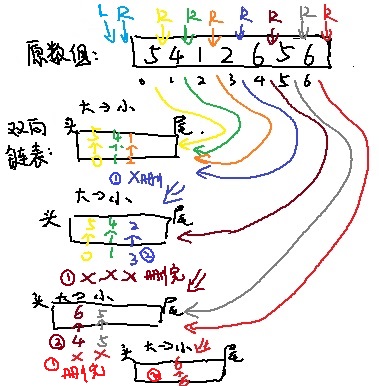 L R R R R R R R
原数组: 5 4 1 2 6 5 6
0 1 2 3 4 5 6
大→小
双向链表: 头 5 4 1 尾
0 1 2
① X 删1
大→小
头 5 4 2 尾
0 1 3 ②
① X X X 删完
头 大→小 尾
6 5
② 4 5
① X X 删完
头 大→小 尾
6
② 6